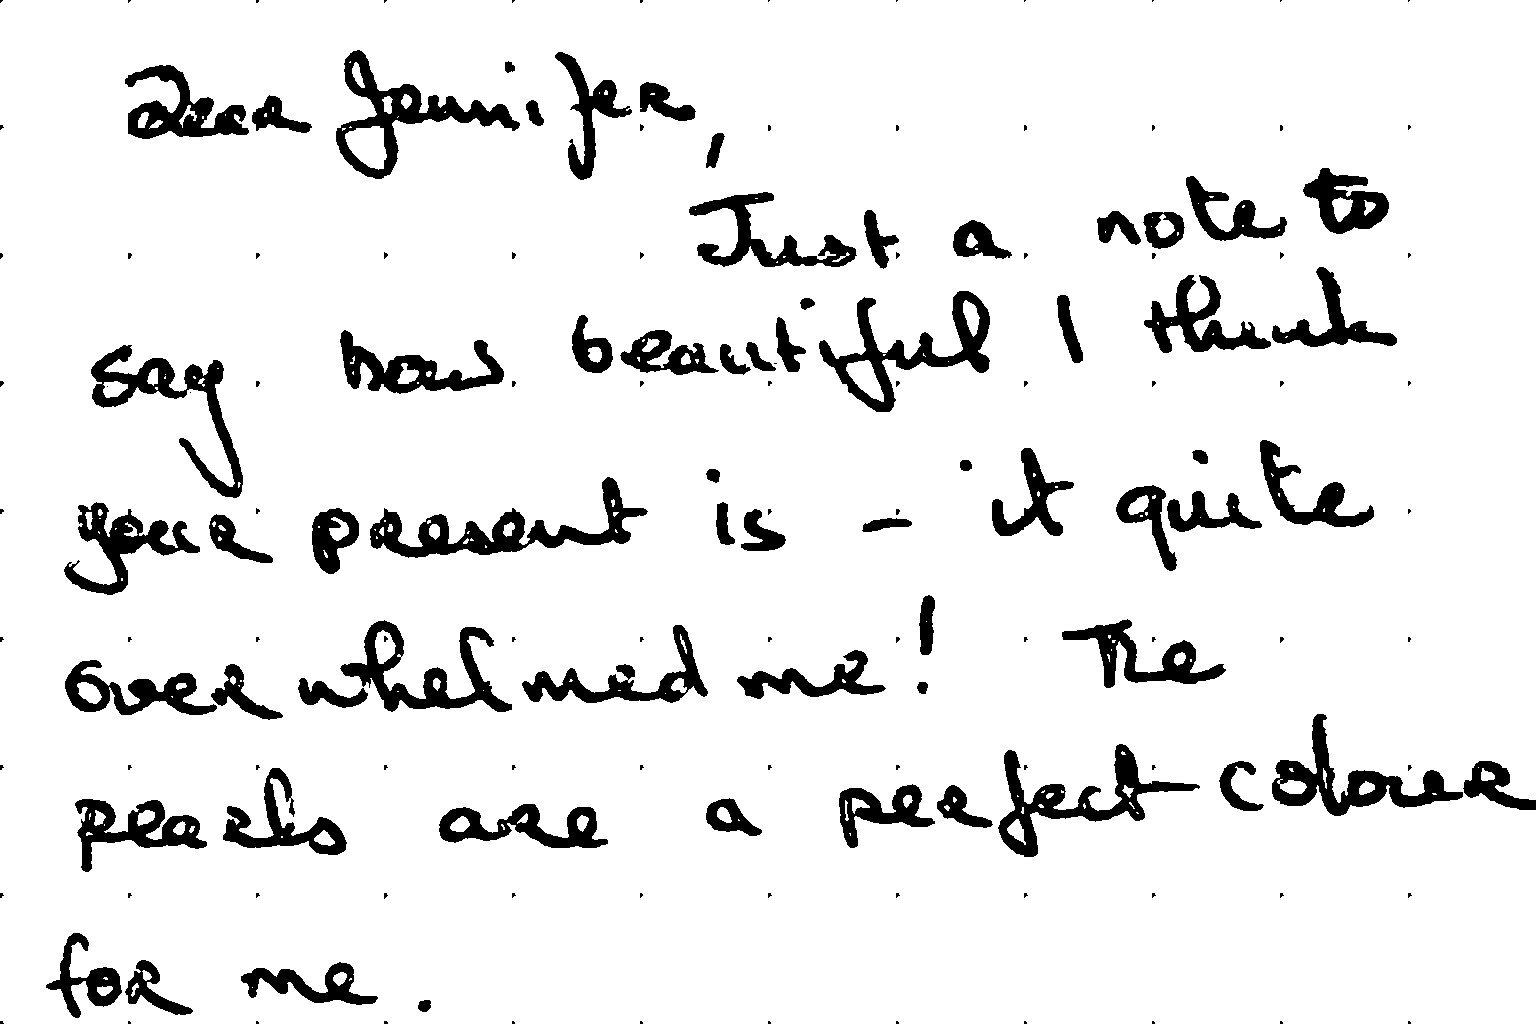 Dear Jennifer,
Just a note to
say how beautiful I think
your present is - it quite
overwhelmed me! The
pearls are a perfect colour
for me.